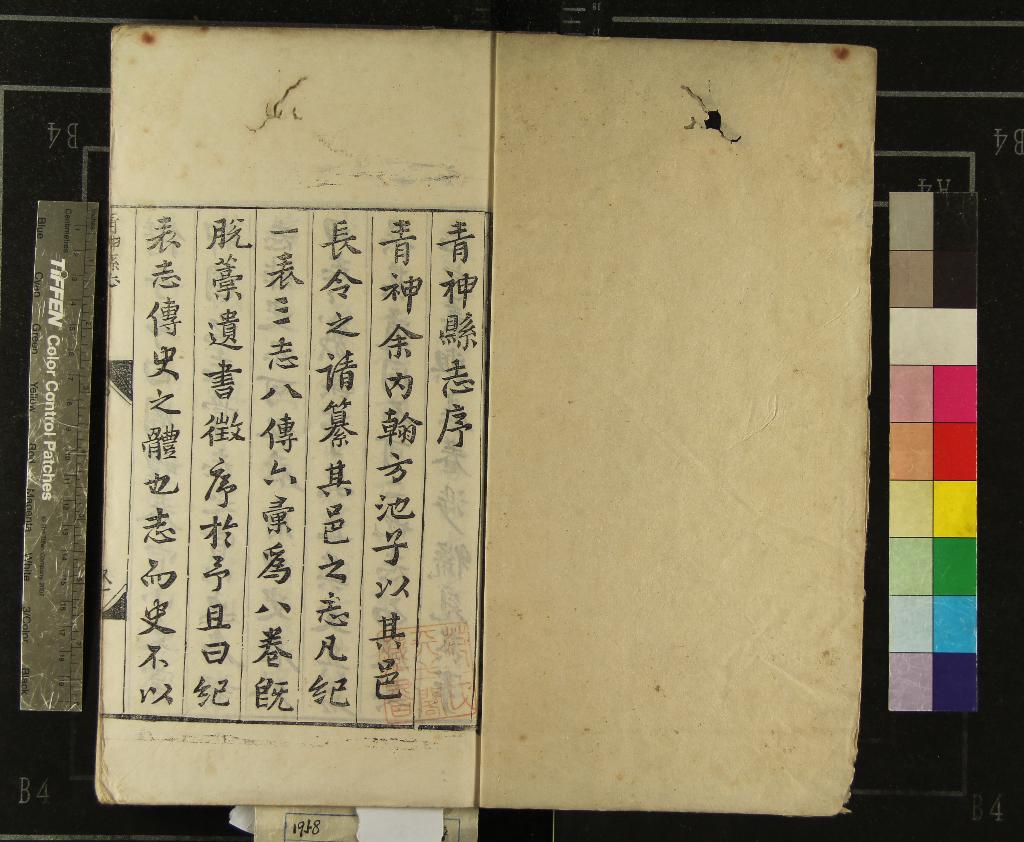 青神縣志序
青神余內翰方池子以其邑
長令之請纂其邑之志凡紀
一表三志八傳六彙爲八卷旣
脫藁遺書徵序於予且曰紀
表志傳史之體也志而史不以
青神縣志
TIFFEN Color Control Patches
Centimetres
Inches
Blue
Cyan
Green
Yellow
Red
Magenta
White
3/Color
Black
B4
B4
A4
B4
B4
1958